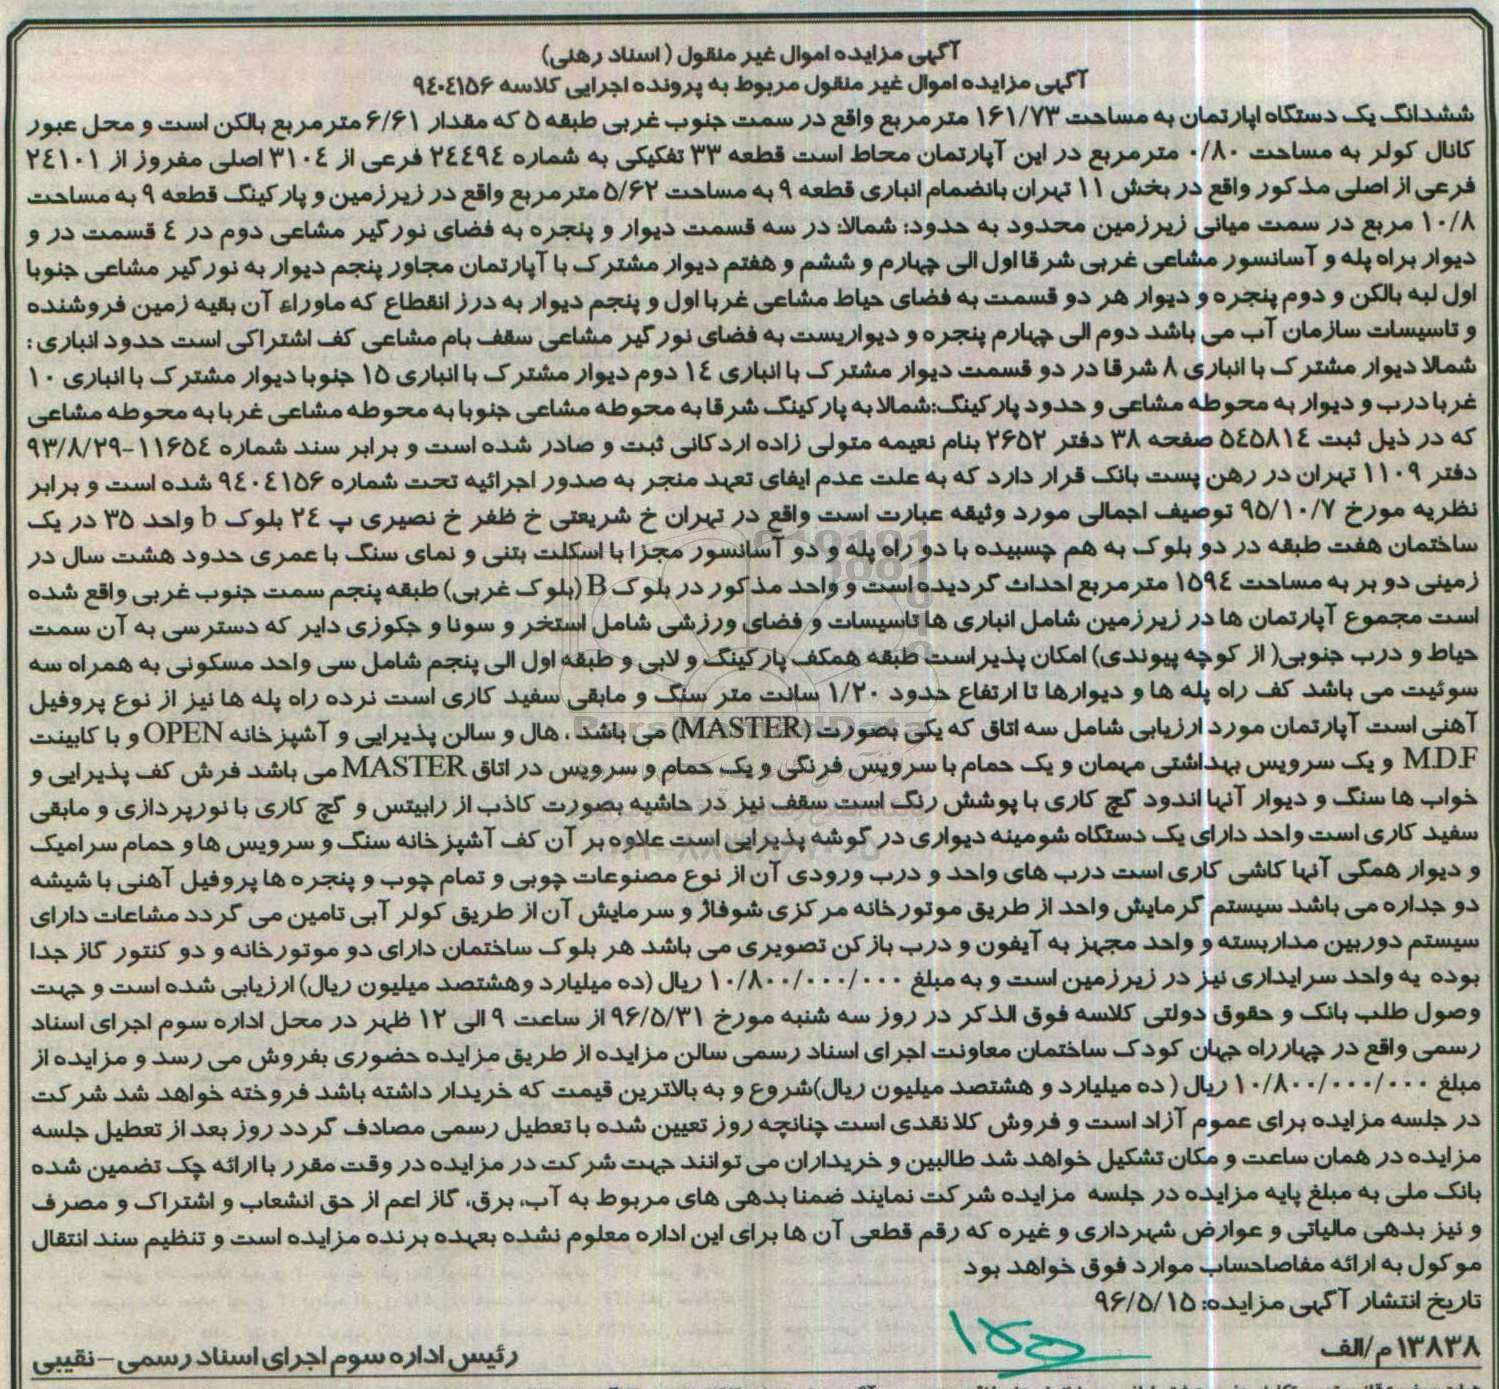 آگهی مزایده اموال غیر منقول ( اسناد رهنی)
آگهی مزایده اموال غیر منقول مربوط به پرونده اجرایی کلاسه ۹۴۰۴۱۵۶
ششدانگ یک دستگاه اپارتمان به مساحت ۱۶۱/۷۳ مترمربع واقع در سمت جنوب غربی طبقه ۵ که مقدار ۶/۶۱ مترمربع بالکن است و محل عبور
کانال کولر به مساحت ۰/۸۰ مترمربع در این آپارتمان محاط است قطعه ۳۳ تفکیکی به شماره ۲۴۴۹۴ فرعی از ۳۱۰۴ اصلی مفروز از ۲۴۱۰۱
فرعی از اصلی مذکور واقع در بخش ۱۱ تهران بانضمام انباری قطعه ۹ به مساحت ۵/۶۲ مترمربع واقع در زیرزمین و پارکینگ قطعه ۹ به مساحت
۱۰/۸ مربع در سمت میانی زیرزمین محدود به حدود: شمالا: در سه قسمت دیوار و پنجره به فضای نورگیر مشاعی دوم در ۴ قسمت در و
دیوار براه پله و آسانسور مشاعی غربی شرقا اول الی چهارم و ششم و هفتم دیوار مشترک با آپارتمان مجاور پنجم دیوار به نورگیر مشاعی جنوبا
اول لبه بالکن و دوم پنجره و دیوار هر دو قسمت به فضای حیاط مشاعی غربا اول و پنجم دیوار به درز انقطاع که ماوراء آن بقیه زمین فروشنده
و تاسیسات سازمان آب می باشد دوم الی چهارم پنجره و دیواریست به فضای نورگیر مشاعی سقف بام مشاعی کف اشتراکی است حدود انباری :
شمالا دیوار مشترک با انباری ۸ شرقا در دو قسمت دیوار مشترک با انباری ۱۴ دوم دیوار مشترک با انباری ۱۵ جنوبا دیوار مشترک با انباری ۱۰
غربا درب و دیوار به محوطه مشاعی و حدود پارکینگ:شمالا به پارکینگ شرقا به محوطه مشاعی جنوبا به محوطه مشاعی غربا به محوطه مشاعی
که در ذیل ثبت ۵۴۵۸۱۴ صفحه ۳۸ دفتر ۲۶۵۲ بنام نعیمه متولی زاده اردکانی ثبت و صادر شده است و برابر سند شماره ۱۱۶۵۴-۹۳/۸/۲۹
دفتر ۱۱۰۹ تهران در رهن پست بانک قرار دارد که به علت عدم ایفای تعهد منجر به صدور اجرائیه تحت شماره ۹۴۰۴۱۵۶ شده است و برابر
نظریه مورخ ۹۵/۱۰/۷ توصیف اجمالی مورد وثیقه عبارت است واقع در تهران خ شریعتی خ ظفر خ نصیری پ ۲۴ بلوک b واحد ۳۵ در یک
ساختمان هفت طبقه در دو بلوک به هم چسبیده با دو راه پله و دو آسانسور مجزا با اسکلت بتنی و نمای سنگ با عمری حدود هشت سال در
زمینی دو بر به مساحت ۱۵۹۴ مترمربع احداث گردیده است و واحد مذکور در بلوک B (بلوک غربی) طبقه پنجم سمت جنوب غربی واقع شده
است مجموع آپارتمان ها در زیرزمین شامل انباری ها تاسیسات و فضای ورزشی شامل استخر و سونا و جکوزی دایر که دسترسی به آن سمت
حیاط و درب جنوبی( از کوچه پیوندی) امکان پذیر است طبقه همکف پارکینگ و لابی و طبقه اول الی پنجم شامل سی واحد مسکونی به همراه سه
سوئیت می باشد کف راه پله ها و دیوارها تا ارتفاع حدود ۱/۲۰ سانت متر سنگ و مابقی سفید کاری است نرده راه پله ها نیز از نوع پروفیل
آهنی است آپارتمان مورد ارزیابی شامل سه اتاق که یکی بصورت (MASTER) می باشد ، هال و سالن پذیرایی و آشپزخانه OPEN و با کابینت
M.D.F و یک سرویس بهداشتی مهمان و یک حمام با سرویس فرنگی و یک حمام و سرویس در اتاق MASTER می باشد فرش کف پذیرایی و
خواب ها سنگ و دیوار آنها اندود گچ کاری با پوشش رنگ است سقف نیز در حاشیه بصورت کاذب از رابیتس و گچ کاری با نورپردازی و مابقی
سفید کاری است واحد دارای یک دستگاه شومینه دیواری در گوشه پذیرایی است علاوه بر آن کف آشپزخانه سنگ و سرویس ها و حمام سرامیک
و دیوار همگی آنها کاشی کاری است درب های واحد و درب ورودی آن از نوع مصنوعات چوبی و تمام چوب و پنجره ها پروفیل آهنی با شیشه
دو جداره می باشد سیستم گرمایش واحد از طریق موتورخانه مرکزی شوفاژ و سرمایش آن از طریق کولر آبی تامین می گردد مشاعات دارای
سیستم دوربین مداربسته و واحد مجهز به آیفون و درب بازکن تصویری می باشد هر بلوک ساختمان دارای دو موتورخانه و دو کنتور گاز جدا
بوده یه واحد سرایداری نیز در زیرزمین است و به مبلغ ۱۰/۸۰۰/۰۰۰/۰۰۰ ریال (ده میلیارد وهشتصد میلیون ریال) ارزیابی شده است و جهت
وصول طلب بانک و حقوق دولتی کلاسه فوق الذکر در روز سه شنبه مورخ ۹۶/۵/۳۱ از ساعت ۹ الی ۱۲ ظهر در محل اداره سوم اجرای اسناد
رسمی واقع در چهارراه جهان کودک ساختمان معاونت اجرای اسناد رسمی سالن مزایده از طریق مزایده حضوری بفروش می رسد و مزایده از
مبلغ ۱۰/۸۰۰/۰۰۰/۰۰۰ ریال ( ده میلیارد و هشتصد میلیون ریال)شروع و به بالاترین قیمت که خریدار داشته باشد فروخته خواهد شد شرکت
در جلسه مزایده برای عموم آزاد است و فروش کلا نقدی است چنانچه روز تعیین شده با تعطیل رسمی مصادف گردد روز بعد از تعطیل جلسه
مزایده در همان ساعت و مکان تشکیل خواهد شد طالبین و خریداران می توانند جهت شرکت در مزایده در وقت مقرر با ارائه چک تضمین شده
بانک ملی به مبلغ پایه مزایده در جلسه مزایده شرکت نمایند ضمنا بدهی های مربوط به آب، برق، گاز اعم از حق انشعاب و اشتراک و مصرف
و نیز بدهی مالیاتی و عوارض شهرداری و غیره که رقم قطعی آن ها برای این اداره معلوم نشده بعهده برنده مزایده است و تنظیم سند انتقال
موکول به ارائه مفاصاحساب موارد فوق خواهد بود
تاریخ انتشار آگهی مزایده: ۹۶/۵/۱۵
۱۳۸۳۸م/الف
رئیس اداره سوم اجرای اسناد رسمی – نقیبی